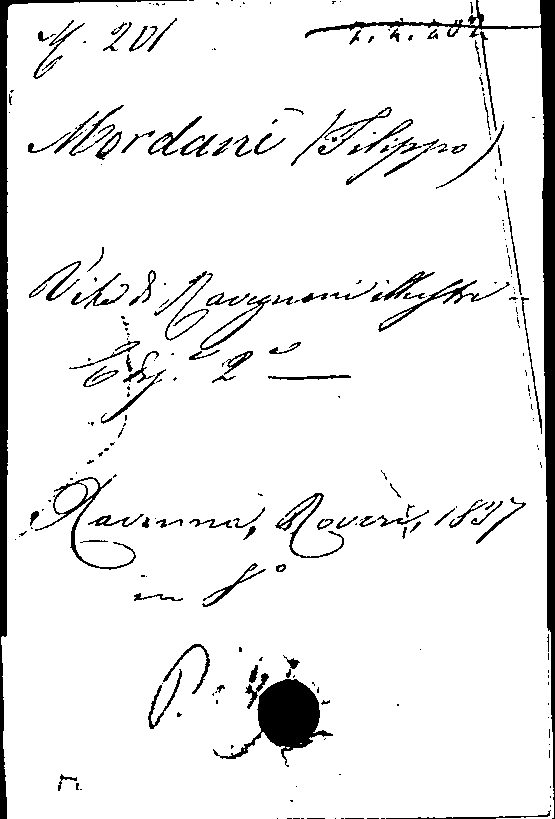 201
Mordani (Filippo)
Vite di Ravegnani illustri
Ediz.e 2a
Ravenna, Roveri, 1837
in 8°